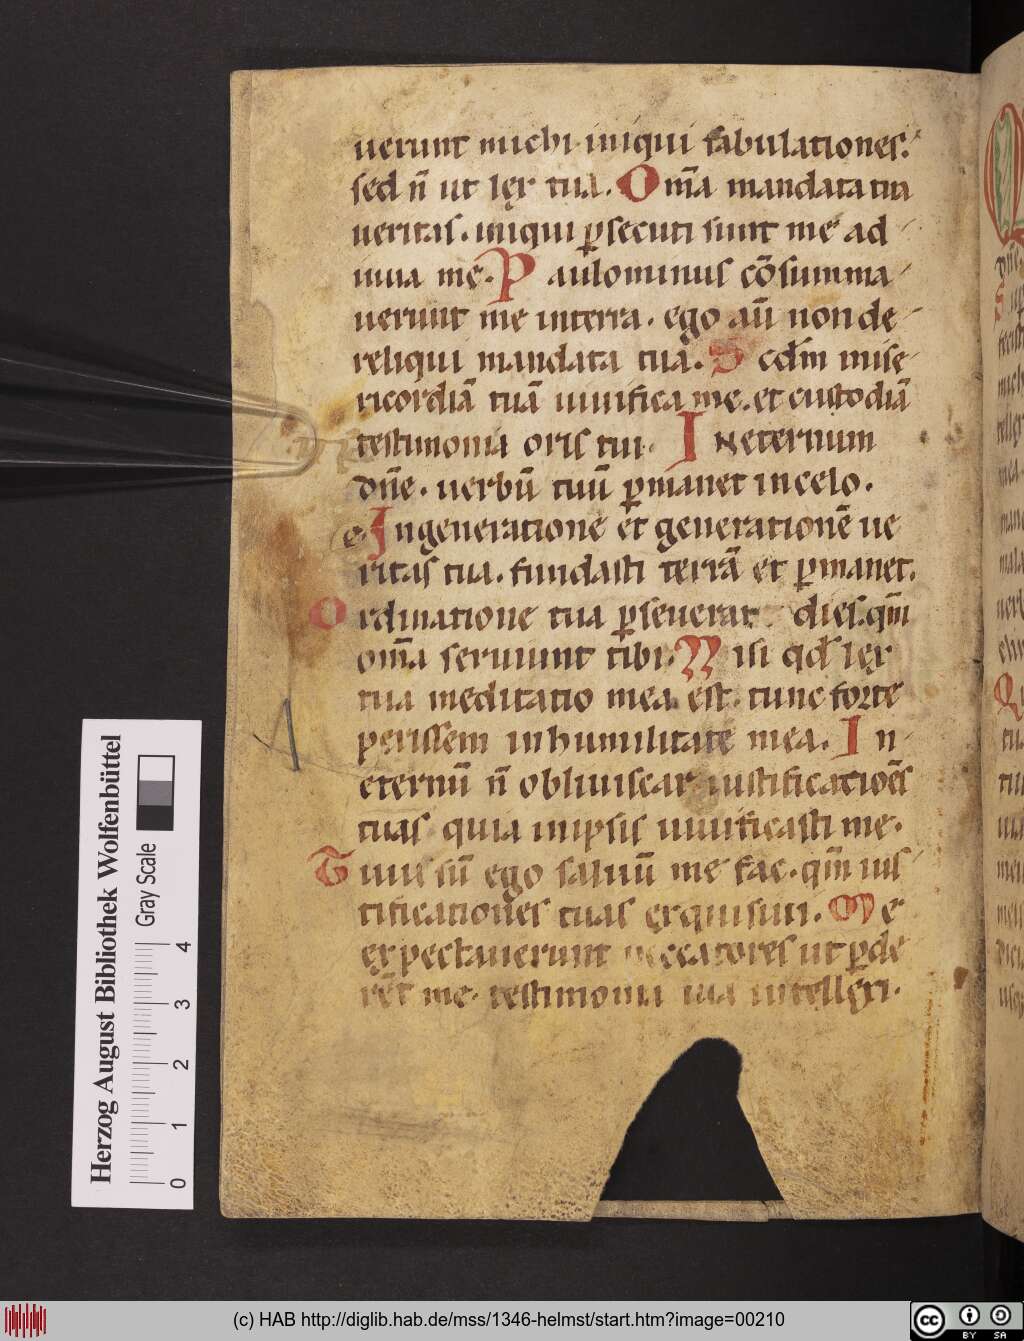 uerunt michi iniqui fabulationes.
sed n̄ ut lęx tua. Om̄a mandata tua
ueritas. iniqui ꝑsecuti sunt me ad
iuua me. Paulominus cōsumma
uerunt me interra. ego aūt non de
reliqui mandata tua. Scdm mise
ricordiā tuā uiuifica me. et custodiā
testimonia oris tui. INeternum
dn̄e. uerbū tuū ꝑmanet in celo.
Ingeneratione et generationē ue
ritas tua. fundasti terrā et ꝑmanet.
Ordinatione tua ꝑseuerat dies. qm̄
om̄a seruiunt tibi. Nisi qd lęx
tua meditatio mea est. tunc forte
perissem inhumilitate mea. In
eternū n̄ obliuiscar iustificatiōes
tuas quia inipsis uiuificasti me.
Tuus sū ego saluū me fac. qm̄ ius
tificationes tuas exquisiui. Me
expectauerunt peccatores ut ꝑde
rēt me. testimonia tua intellexi.
Herzog August Bibliothek Wolfenbüttel
Gray Scale
0 1 2 3 4
(c) HAB http://diglib.hab.de/mss/1346-helmst/start.htm?image=00210
cc BY SA